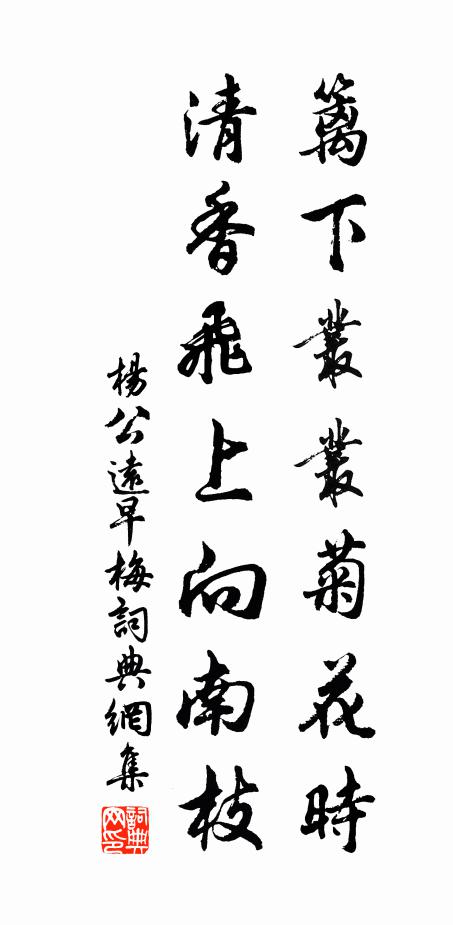 籬下叢叢菊花時
清香飛上向南枝
楊公遠早梅詞典網集
詞典網印